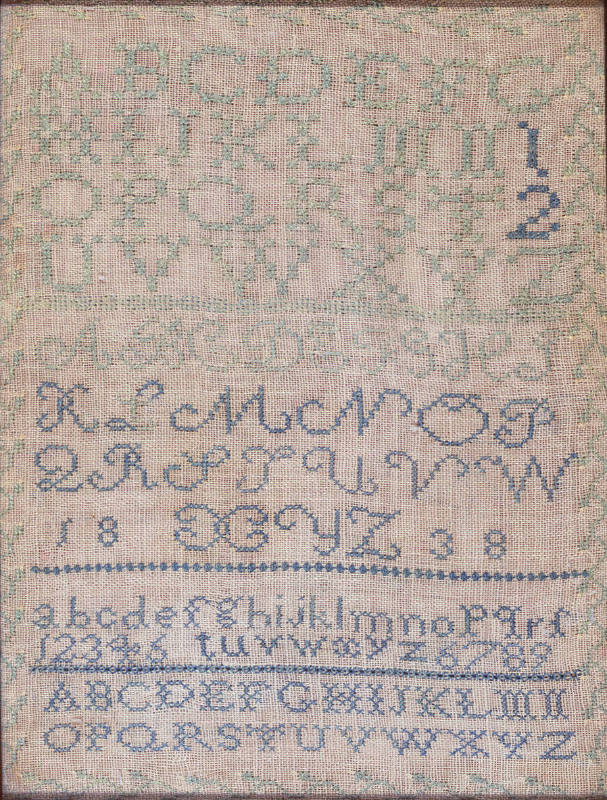 A B C D E F G
H I J K L M N 1.
O P Q R S T 2
U V W X Y Z
A B C D E F G H I J
K L M N O P
Q R S T U V W
1 8 X Y Z 3 8
a b c d e f g h i j k l m n o p q r f
t u v w x y z 6 7 8 9
A B C D E F G H I J K L M N
O P Q R S T U V W X Y Z